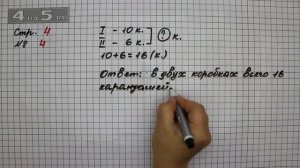 4 на 5.ru
Стр. 4
№ 4
I - 10 к.
II - 6 к.
? к.
10 + 6 = 16 (к.)
Ответ: в двух коробках всего 16
карандашей.